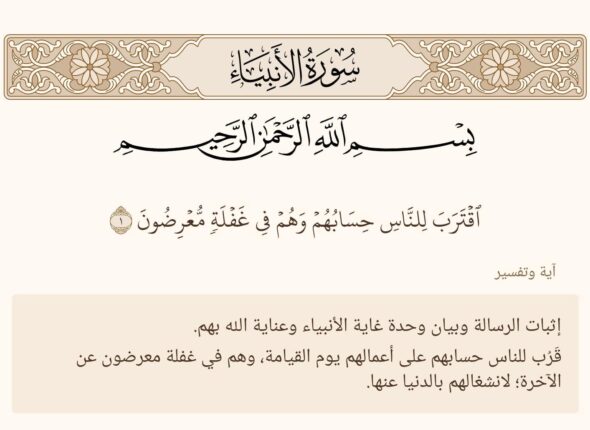 سُورَةُ الأَنبِيَاءِ
بِسْمِ ٱللَّهِ ٱلرَّحْمَٰنِ ٱلرَّحِيمِ
ٱقْتَرَبَ لِلنَّاسِ حِسَابُهُمْ وَهُمْ فِي غَفْلَةٖ مُّعْرِضُونَ ١
آية وتفسير
إثبات الرسالة وبيان وحدة غاية الأنبياء وعناية الله بهم.
قَرُب للناس حسابهم على أعمالهم يوم القيامة، وهم في غفلة معرضون عن
الآخرة؛ لانشغالهم بالدنيا عنها.